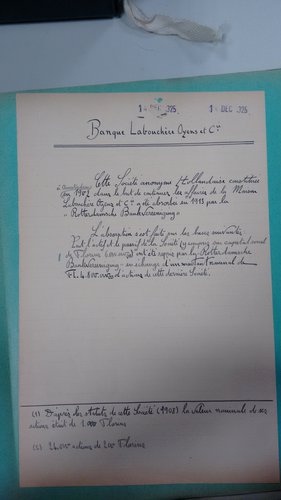 1 DEC 1925 1 DEC 1925
Banque Labouchère Oyens et Cie
Cette Société anonyme Hollandaise constituée
à Amsterdam
en 1902 dans le but de continuer les affaires de la Maison
Labouchère Oyens et Cie a été absorbée en 1913 par la
"Rotterdamsche Bankvereeniging"
L'absorption s'est faite sur les bases suivantes
l'actif et le passif de la Société (y compris son capital social
de Florins) ont été repris par la Rotterdamsche
Bankvereeniging en échange d'un montant nominal de
Fl. 4.800.000 d'actions de cette dernière Société.
(1) D'après les statuts de cette Société (1902) la valeur nominale de ses
actions était de 1.000 Florins
actions de 200 Florins